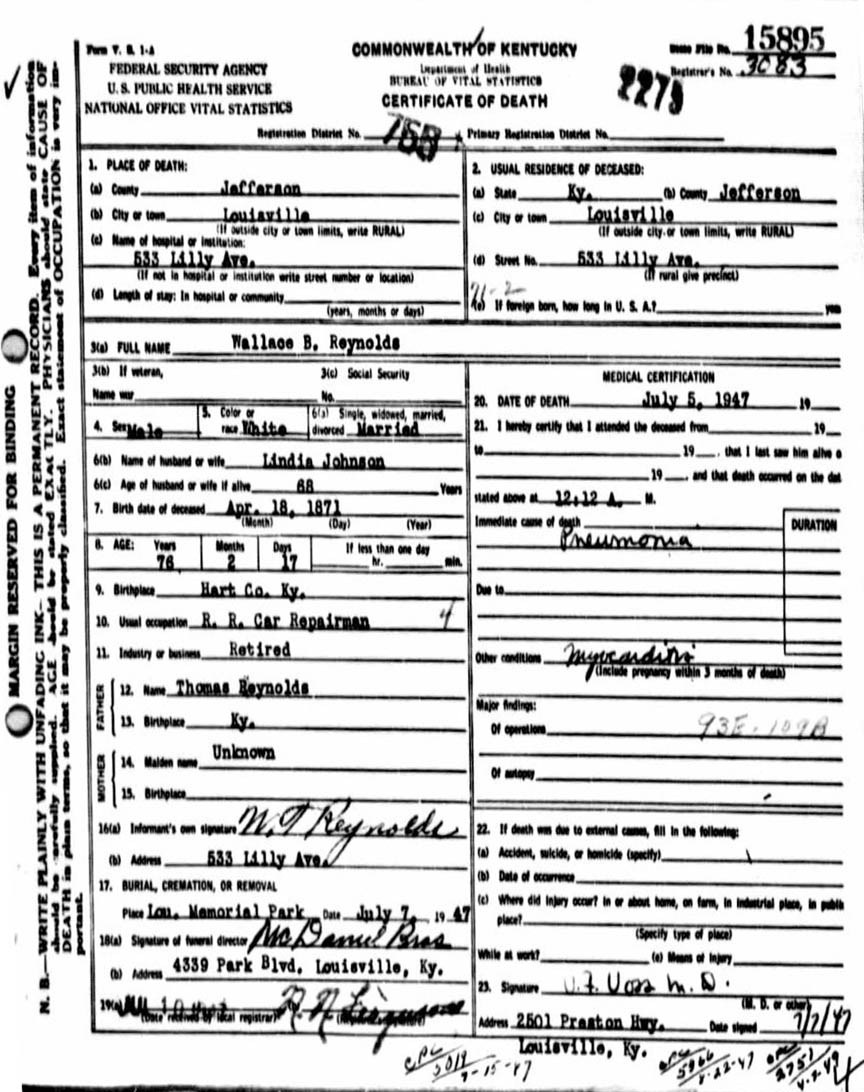 Form V. S. 1-A
FEDERAL SECURITY AGENCY
U. S. PUBLIC HEALTH SERVICE
NATIONAL OFFICE VITAL STATISTICS
COMMONWEALTH OF KENTUCKY
Department of Health
BUREAU OF VITAL STATISTICS
CERTIFICATE OF DEATH
State File No. 15895
Registrar's No. 3083
2279
Registration District No. 755 Primary Registration District No.
MARGIN RESERVED FOR BINDING
N. B.—WRITE PLAINLY WITH UNFADING INK—THIS IS A PERMANENT RECORD. Every item of information
should be carefully supplied. AGE should be stated EXACTLY. PHYSICIANS should state CAUSE OF
DEATH in plain terms, so that it may be properly classified. Exact statement of OCCUPATION is very im-
portant.
1. PLACE OF DEATH:
(a) County Jefferson
(b) City or town Louisville
(If outside city or town limits, write RURAL)
(c) Name of hospital or institution:
533 Lilly Ave.
(If not in hospital or institution write street number or location)
(d) Length of stay: In hospital or community
(years, months or days)
2. USUAL RESIDENCE OF DECEASED:
(a) State Ky. (b) County Jefferson
(c) City or town Louisville
(If outside city or town limits, write RURAL)
(d) Street No. 533 Lilly Ave.
(If rural give precinct)
71-2
(e) If foreign born, how long in U. S. A.? years
3(a) FULL NAME Wallace B. Reynolds
3(b) If veteran,
Name war
3(c) Social Security
No.
4. Sex Male
5. Color or
race White
6(a) Single, widowed, married,
divorced Married
6(b) Name of husband or wife Lindia Johnson
6(c) Age of husband or wife if alive 68 Years
7. Birth date of deceased Apr. 18, 1871
(Month) (Day) (Year)
8. AGE: Years Months Days If less than one day
76 2 17 hr. min.
9. Birthplace Hart Co. Ky.
10. Usual occupation R. R. Car Repairman 4
11. Industry or business Retired
FATHER
12. Name Thomas Reynolds
13. Birthplace Ky.
MOTHER
14. Maiden name Unknown
15. Birthplace
16(a) Informant's own signature W. T Reynolds
(b) Address 533 Lilly Ave.
17. BURIAL, CREMATION, OR REMOVAL
Place Lou. Memorial Park Date July 7, 1947
18(a) Signature of funeral director McDaniel Bros
(b) Address 4339 Park Blvd. Louisville, Ky.
19(a)
(Date received by local registrar)
MEDICAL CERTIFICATION
20. DATE OF DEATH July 5, 1947 19
21. I hereby certify that I attended the deceased from 19
to 19 , that I last saw him alive o
19 , and that death occurred on the dat
stated above at 12:12 A. M.
Immediate cause of death DURATION
Pneumonia
Due to
Other conditions Myocarditis
(Include pregnancy within 3 months of death)
Major findings:
Of operations 93E-109B
Of autopsy
22. If death was due to external causes, fill in the following:
(a) Accident, suicide, or homicide (specify)
(b) Date of occurrence
(c) Where did injury occur? In or about home, on farm, in industrial place, in public
place?
(Specify type of place)
While at work? (e) Means of injury
23. Signature V. F. Voss M. D.
(M. D. or other)
Address 2501 Preston Hwy. Date signed 7/7/47
Louisville, Ky.